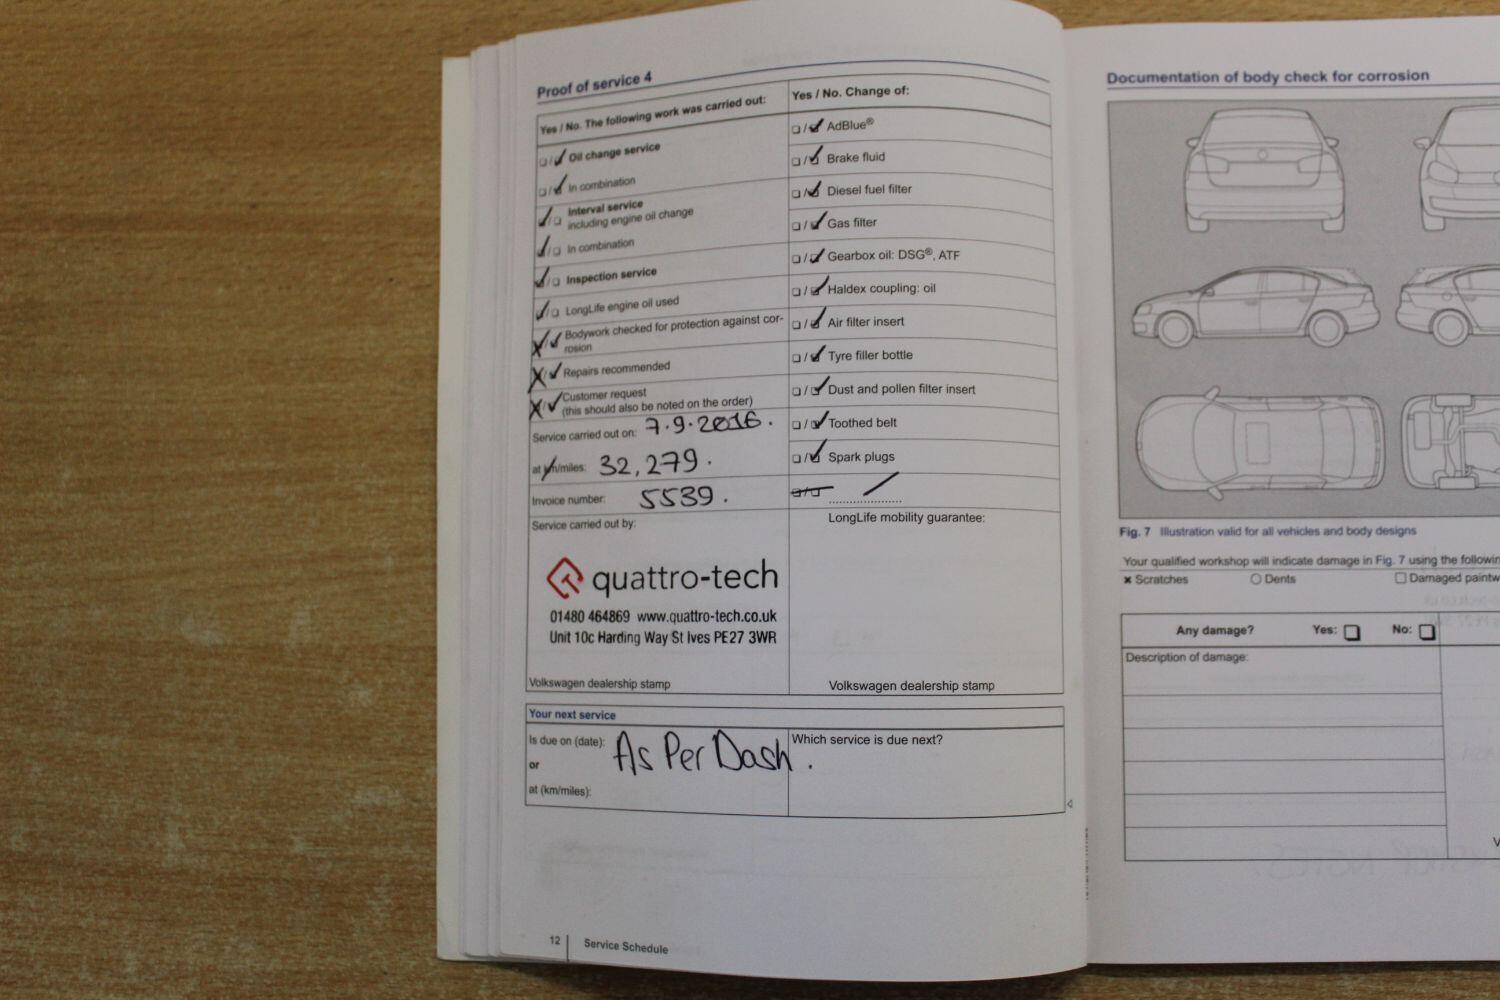 Proof of service 4
Yes / No. The following work was carried out:
Oil change service
In combination
Interval service
including engine oil change
In combination
Inspection service
LongLife engine oil used
Bodywork checked for protection against cor-
rosion
Repairs recommended
Customer request
(this should also be noted on the order)
Service carried out on: 7.9.2016.
at km/miles: 32,279.
Invoice number: 5539.
Service carried out by:
quattro-tech
01480 464869 www.quattro-tech.co.uk
Unit 10c Harding Way St Ives PE27 3WR
Volkswagen dealership stamp
Yes / No. Change of:
AdBlue®
Brake fluid
Diesel fuel filter
Gas filter
Gearbox oil: DSG®, ATF
Haldex coupling: oil
Air filter insert
Tyre filler bottle
Dust and pollen filter insert
Toothed belt
Spark plugs
LongLife mobility guarantee:
Volkswagen dealership stamp
Your next service
Is due on (date): As Per Dash.
or
at (km/miles):
Which service is due next?
12 Service Schedule
Documentation of body check for corrosion
Fig. 7 Illustration valid for all vehicles and body designs
Your qualified workshop will indicate damage in Fig. 7 using the
Scratches Dents Damaged
Any damage? Yes: No:
Description of damage: